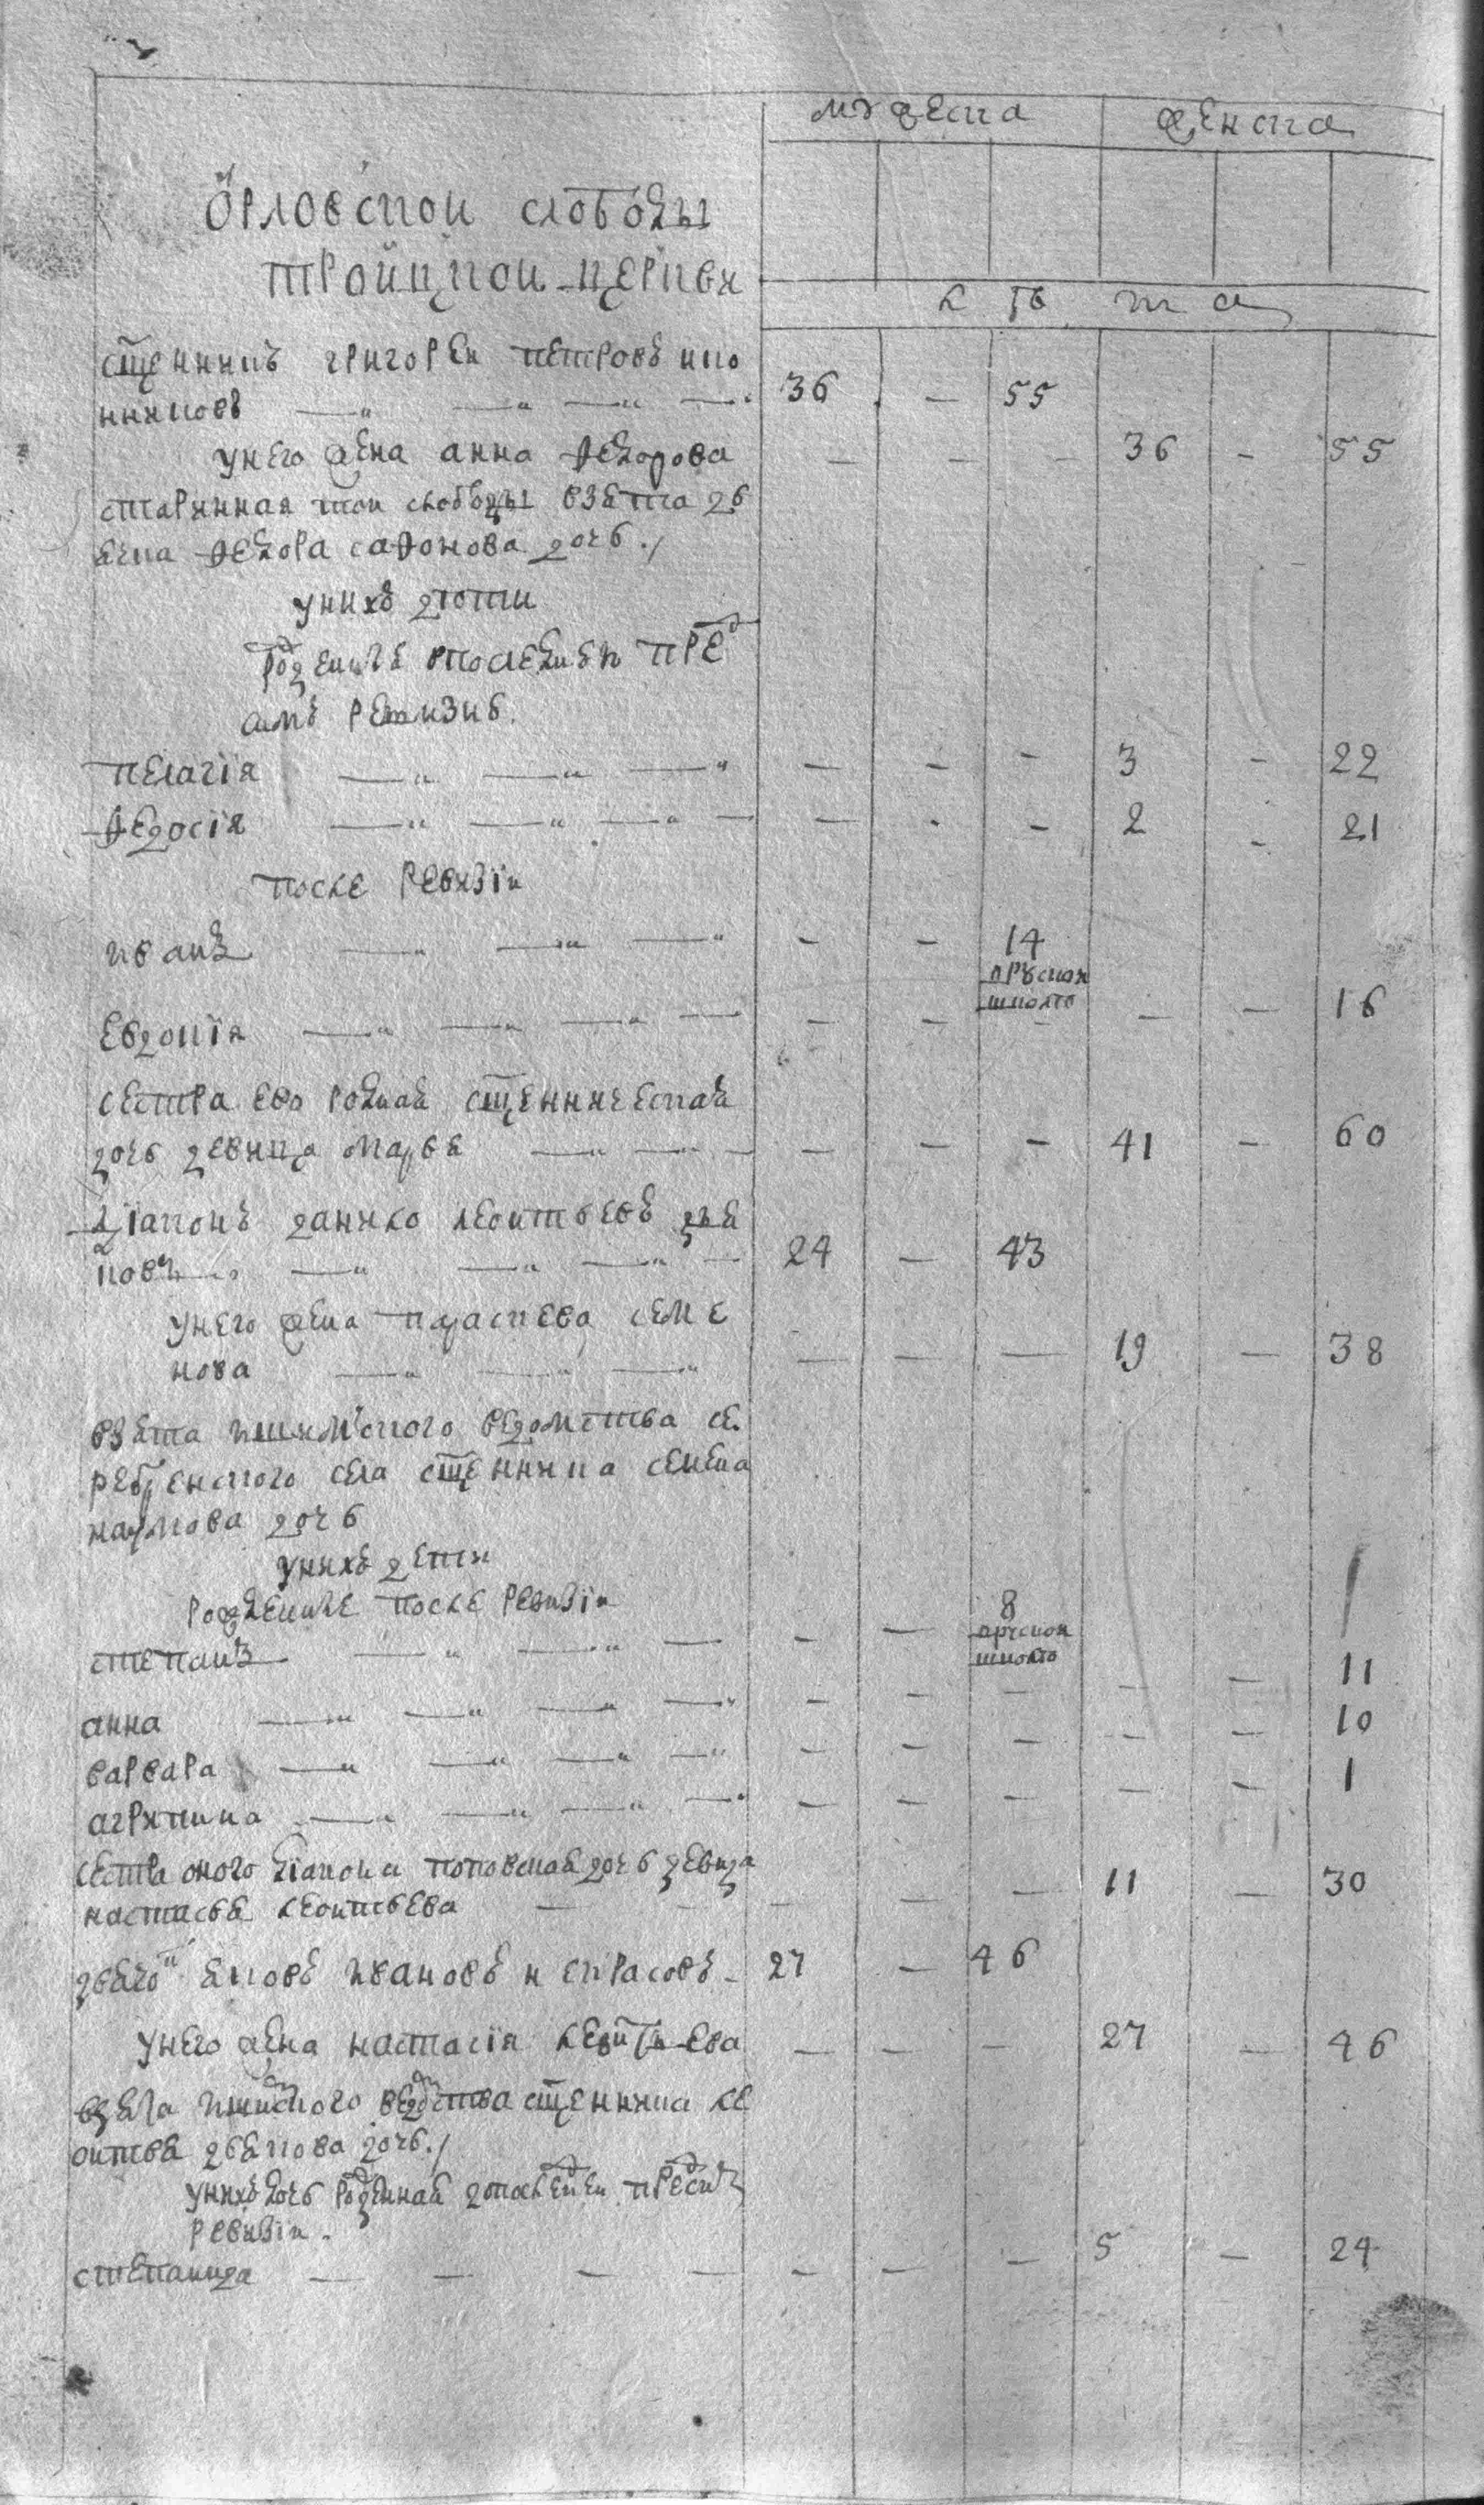 мужеска женска
Орловской слободы
Тройцкой церкви
лѣта
сщенникъ григореи петровъ ико
нниковъ 36 — 55
унего жена анна ѳедорова — — — 36 — 55
старинная тои слободы взета дь
ечка ѳедора саѳонова дочь
унихъ дети
рожденые впоследнеи пред
симъ ревизиь
пелагїя — — — 3 — 22
ѳедосїя — — — 2 — 21
после ревизїи
иванъ — — 14
вруской
школѣ
евдокїя — — — — — 16
сестра ево родная сщенническая
дочь девица марѳа — — — 41 — 60
дїаконъ данило леонтьевъ дья
ковъ 24 — 43
унего жена параскева семе
нова — — — 19 — 38
взята ишимского ведомства се
ребренского села сщенника семена
наумова дочь
унихъ дети
рожденые после ревизїи
степанъ — — 8
вруской
школѣ
анна — — — — — 11
варвара — — — — — 10
агрипина — — — — — 1
сестра оного дїакона поповская дочь девица
настасья леонтьева — — — 11 — 30
дьячо к яковъ ивановъ некрасовъ 27 — 46
унего жена настасїя леонтьева — — — 27 — 46
взята ишимского ведомства сщенника ле
онтья дьякова дочь
унихъ дочь рожденная допоследнеи предсимъ
ревизїи
степанида — — — 5 — 24